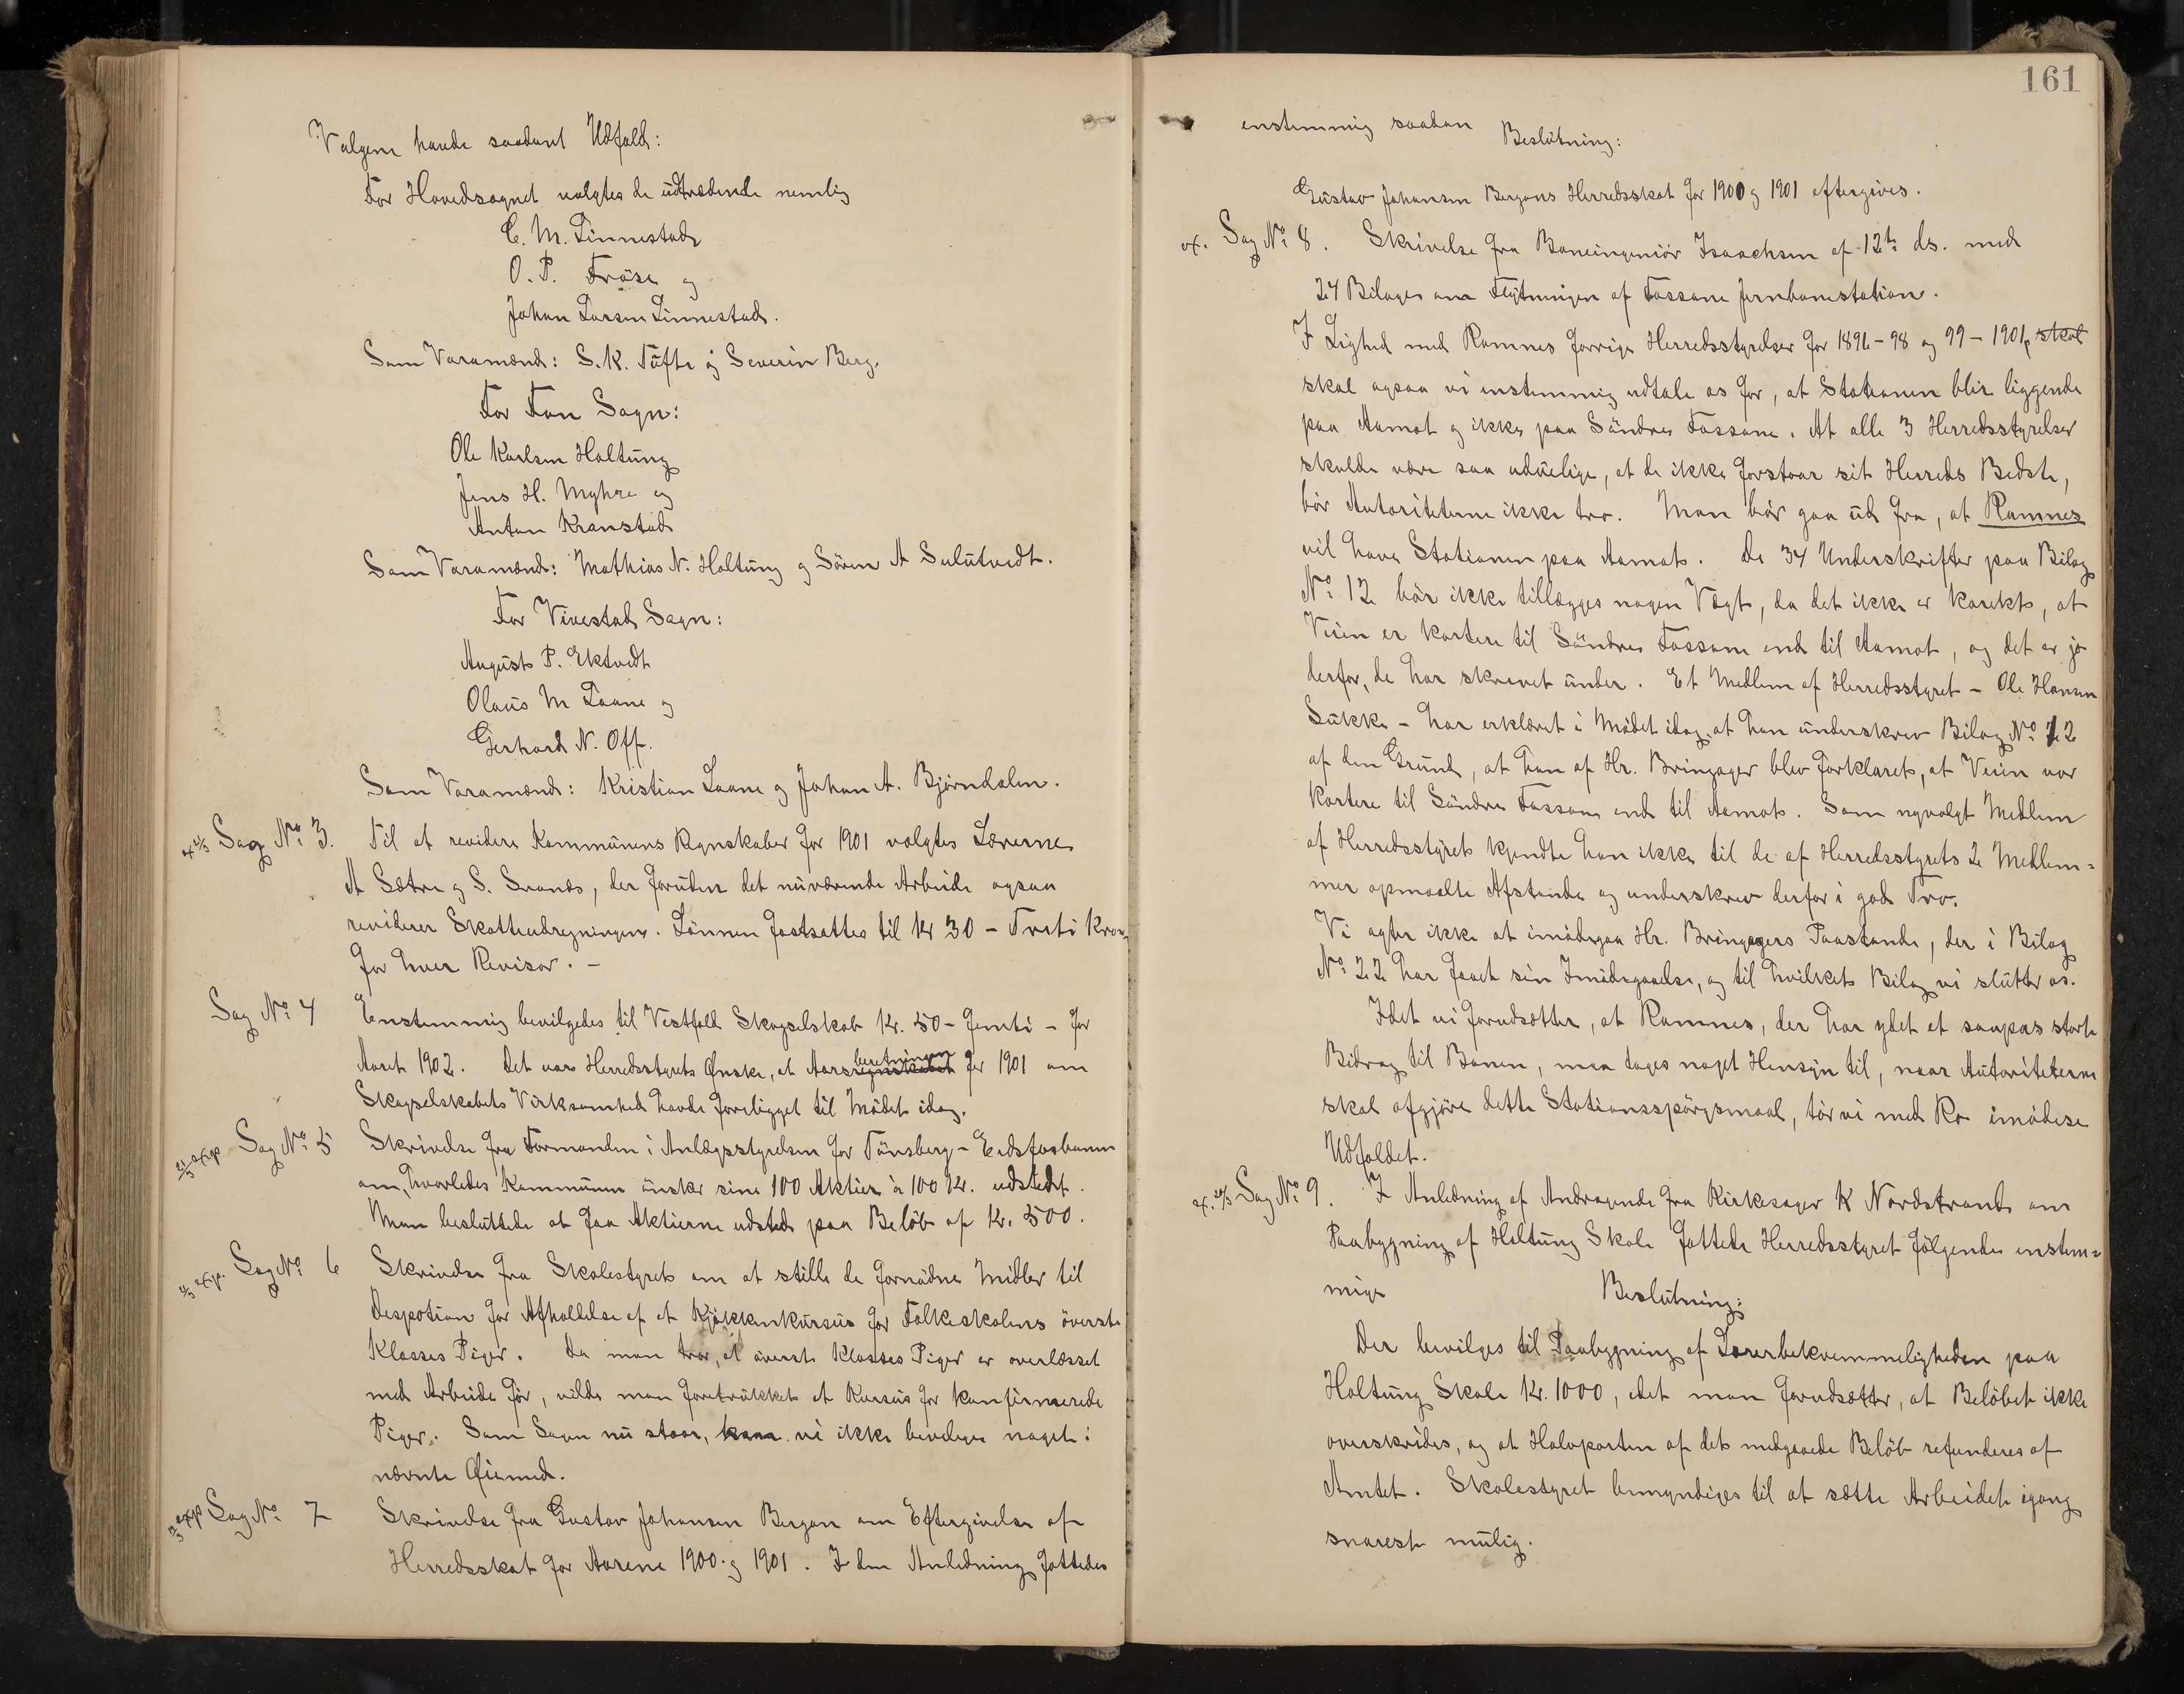 Valgene havde saadant Udfald:
For Hovedsognet valgtes de udtrædende nemlig
C. M. Linnestad
O. P. Fröse og
Johan Larsen Linnestad.
Som Varamænd: S. K. Tufte og Severin Berg.
For Fon Sogn:
Ole Karlsen Holtung
Jens H. Myhre og
Anton Kranstad
Som Varamænd: Mathias N. Holtung og Sören A Sulutvedt.
For Vivestad Sogn:
August P. Ektvedt
Olaus M Laane og
Gerhard N. Off.
Som Varamænd: Kristian Laane og Johan A. Bjørndalen.
Sag No 3. Til at revidere Kommunens Regnskaber for 1901 valgtes Lærerne
A Sætre og S. Svanes, der foruden det nuværende Arbeide ogsaa
reviderer Skatteudregningen. Lønnen fastsattes til Kr 30 – Treti Kroner
for hver Revisor. –
Sag No 4 Enstemmig bevilgedes til Vestfold Skogselskab Kr. 50 – femti – for
Aaret 1902. Det var Herredsstyrets Ønske, at Aarsregnskabet beretningen for 1901 om
Skogselskabets Virksomhed havde foreligget til Mödet idag.
exp Sag No 5 Skrivelse fra Formanden i Anlægsstyrelsen for Tönsberg – Eidsfosbanen
om, hvorledes Kommunen önsker sine 100 Aktier à 100 Kr. udstedt.
Man besluttede at faa Aktierne udsted paa Belöb af Kr. 500.
exp. Sag No 6 Skrivelse fra Skolestyret om at stille de fornödne Midler til
Despotion for Afholdelse af et Kjökkenkursus for Folkeskolens överste
Klasses Piger. Da man tror, at överste Klasses Piger er overlæsset
med Arbeide för, vilde man foretrukket et Kursus for konfirmerede
Piger. Som Sagen nu staar, kan vi ikke bevilge noget i
nævnte Øiemed.
exp Sag No 7 Skrivelse fra Gustav Johansen Bergan om Eftergivelse af
Herredsskat for Aarene 1900 og 1901. I den Anledning fattedes
161
enstemmig saadan
Beslutning:
Gustav Johansen Bergans Herredsskat for 1900 og 1901 eftergives.
ex. Sag No 8. Skrivelse fra Baneingeniör Isaachsen af 12te ds. med
24 Bilager om Flytningen af Fossane Jernbanestation.
I Lighed med Ramnes forrige Herredsstyrelser for 1896 – 98 og 99 – 1901, skal
skal ogsaa vi enstemmig udtale os for, at Stationen blir liggende
paa Aamot og ikke paa Söndre Fossane. At alle 3 Herredsstyrelser
skulde være saa uduelige, at de ikke forstaar sit Herreds Bedste,
bör Autoriteterne ikke tro. Man bör gaa ud fra, at Ramnes
vil have Stationen paa Aamot. De 34 Underskrifter paa Bilag
No 12 bör ikke tillægges nogen Vægt, da det ikke er korekt, at
Veien er kortere til Söndre Fossane end til Aamot, og det er jo
derfor, de har skrevet under. Et Medlem af Herredsstyret – Ole Hansen
Sukke – har erklæret i Mödet idag, at han underskrev Bilag No 12
af den Grund, at han af Hr. Bringager blev forklaret, at Veien var
kortere til Söndre Fossane end til Aamot. Som nyvalgt Medlem
af Herredsstyret kjendte han ikke til de af Herredsstyrets 2 Medlem=
mer opmaalte Afstande og underskrev derfor i god Tro.
Vi agter ikke at imödegaa Hr. Bringagers Paastande, der i Bilag
No 22 har faaet sin Imödegaaelse, og til hvilket Bilag vi slutter os.
Idet vi forudsætter, at Ramnes, der har ydet et saapas stort
Bidrag til Banen, maa tages noget Hensyn til, naar Autoriteterne
skal afgjöre dette Stationsspörgsmaal, tör vi med Ro imödese
Udfaldet.
ex. Sag No 9. I Anledning af Andragende fra Kirkesager K Nordstrand om
Paabygning af Holtung Skole fattede Herredsstyret fölgende enstem=
mige Beslutning:
Der bevilges til Paabygning af Lærerbekvemmeligheden paa
Holtung Skole Kr. 1000, idet man forudsætter, at Belöbet ikke
overskrides, og at Halvparten af det medgaaede Belöb refunderes af
Amtet. Skolestyret bemyndiges til at sætte Arbeidet igang
snarest mulig.